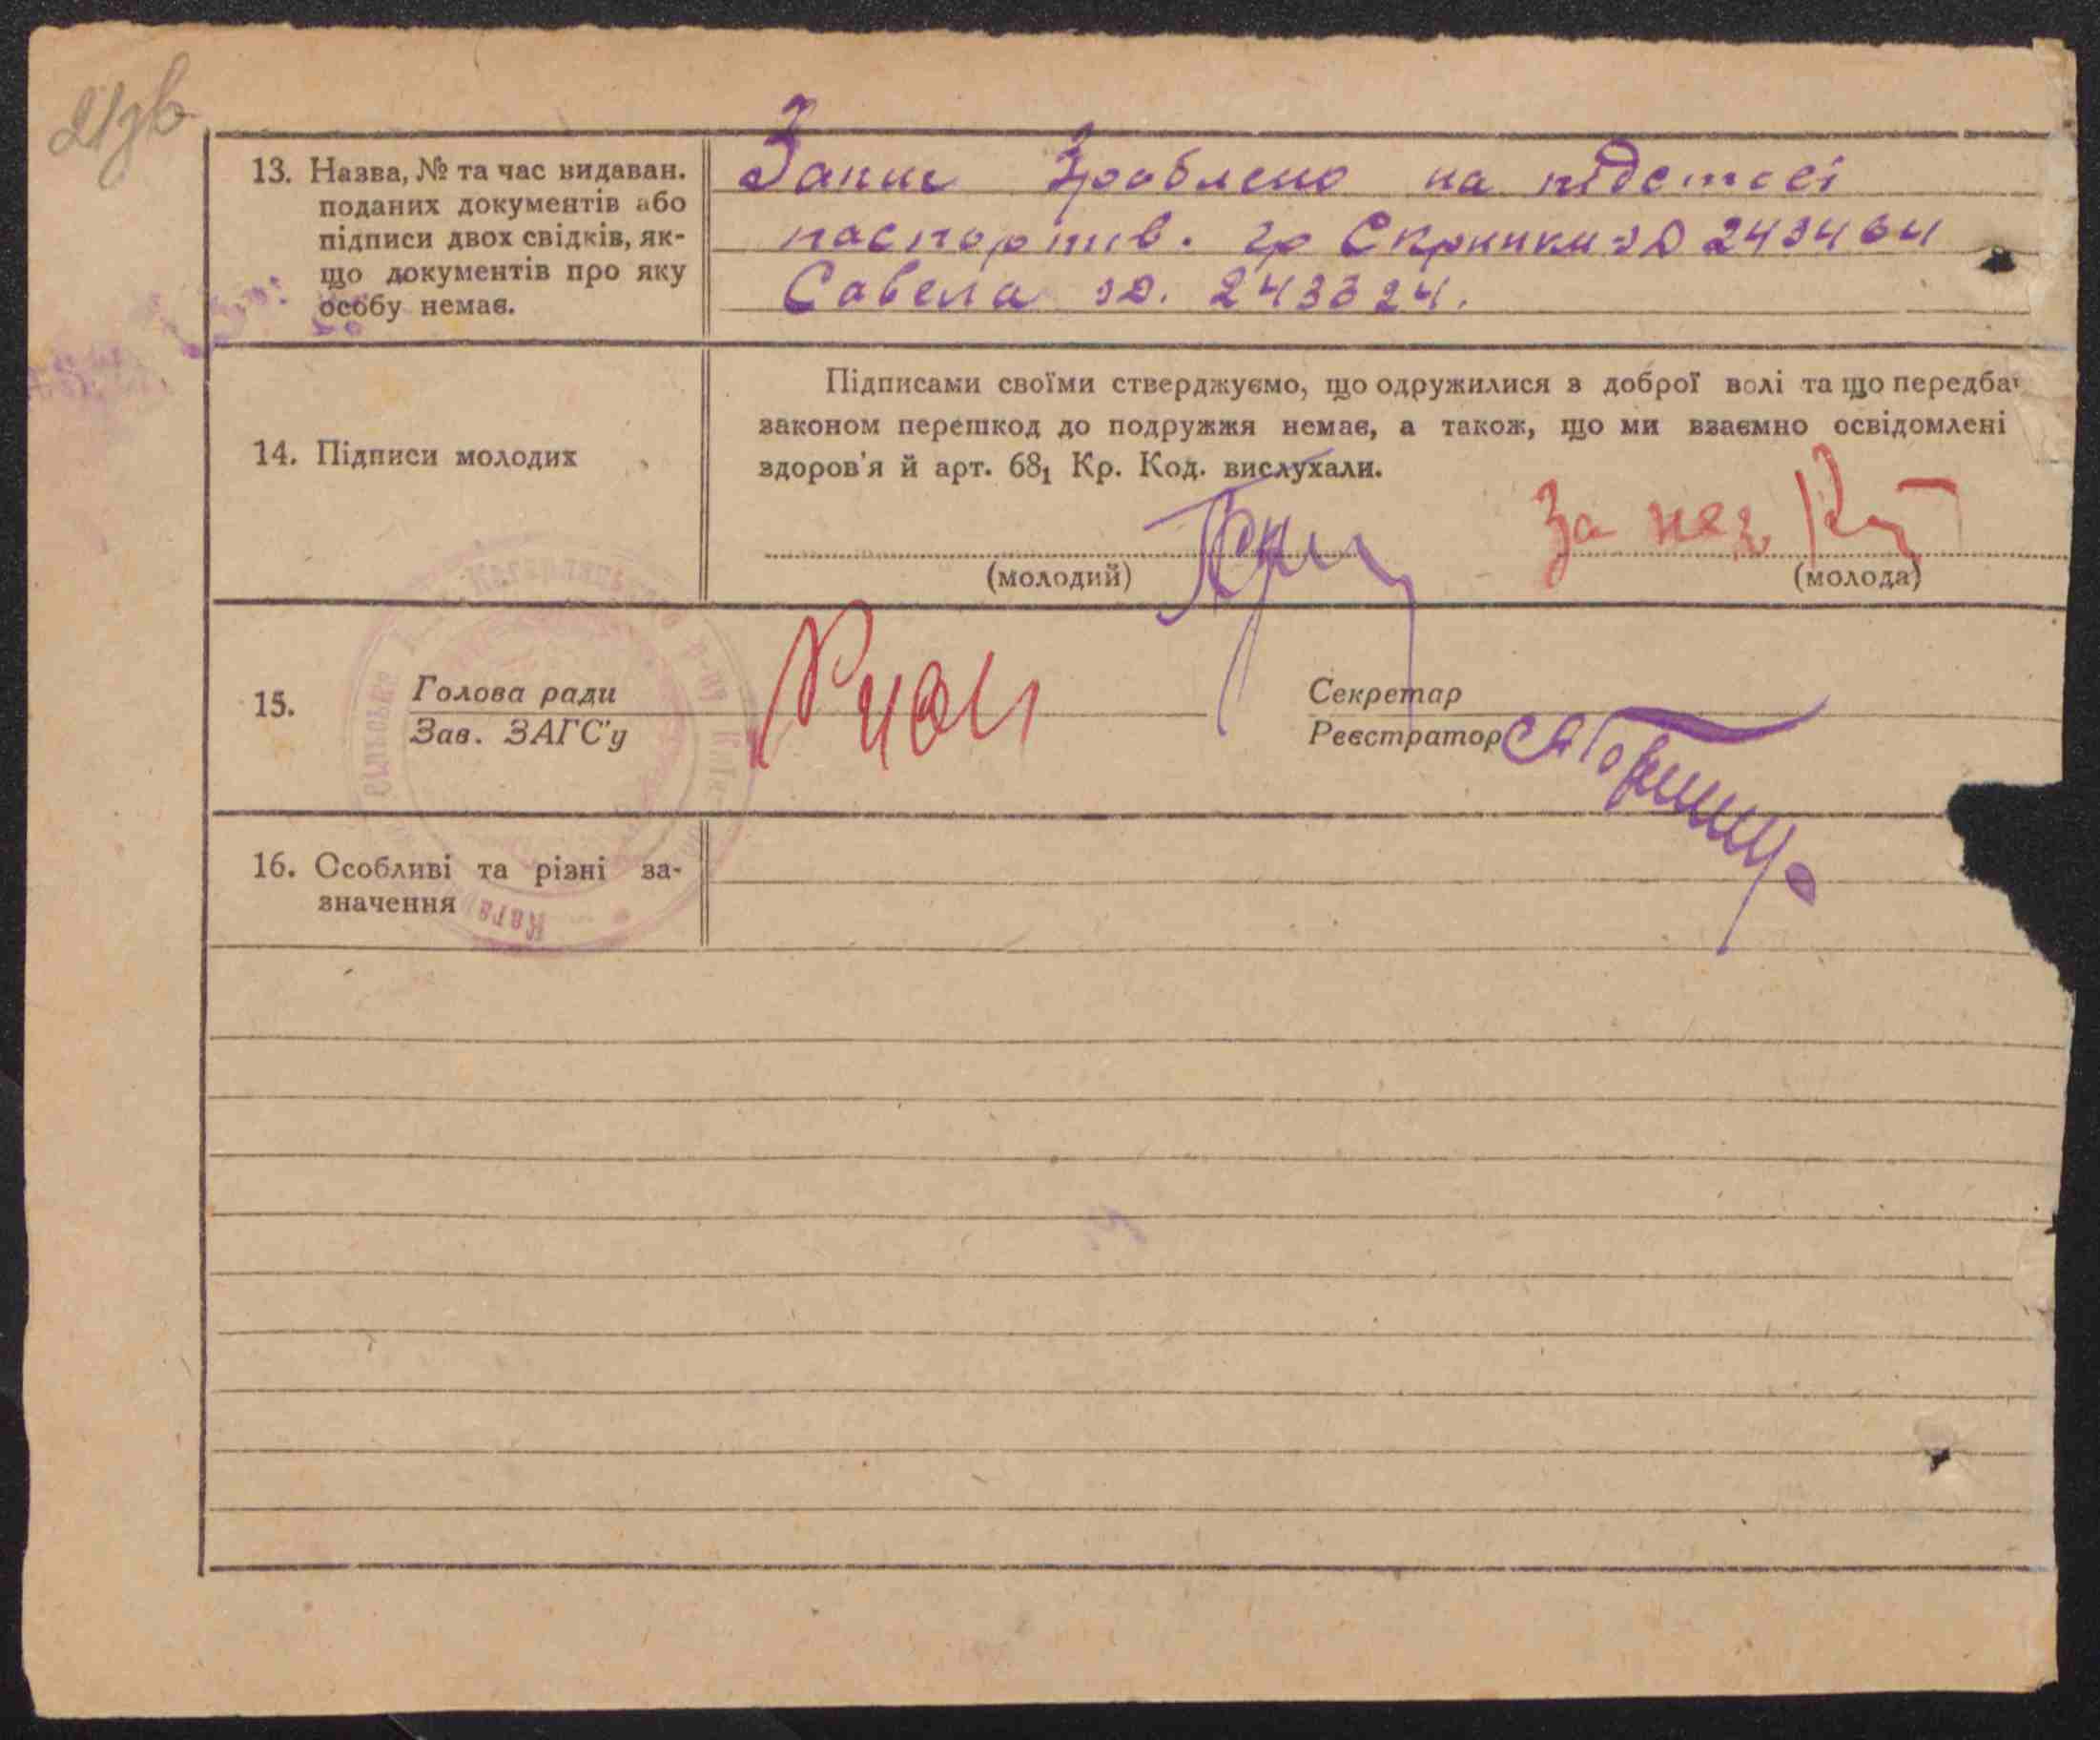 21зв
13. Назва, № та час видаван.
поданих документів або
підписи двох свідків, як-
що документів про яку
особу немає.
Запис Зроблено на підставі
паспортів. гр Скрипки ЭД 243464
Савела ЭД. 243324.
14. Підписи молодих
Підписами своїми стверджуємо, що одружилися з доброї волі та що передба
законом перешкод до подружжя немає, а також, що ми взаємно освідомлені
здоров'я й арт. 68₁ Кр. Код. вислухали.
За неї
(молодий)
(молода)
15.
Голова ради
Зав. ЗАГС'у
Секретар
Реєстратор
16. Особливі та різні за-
значення